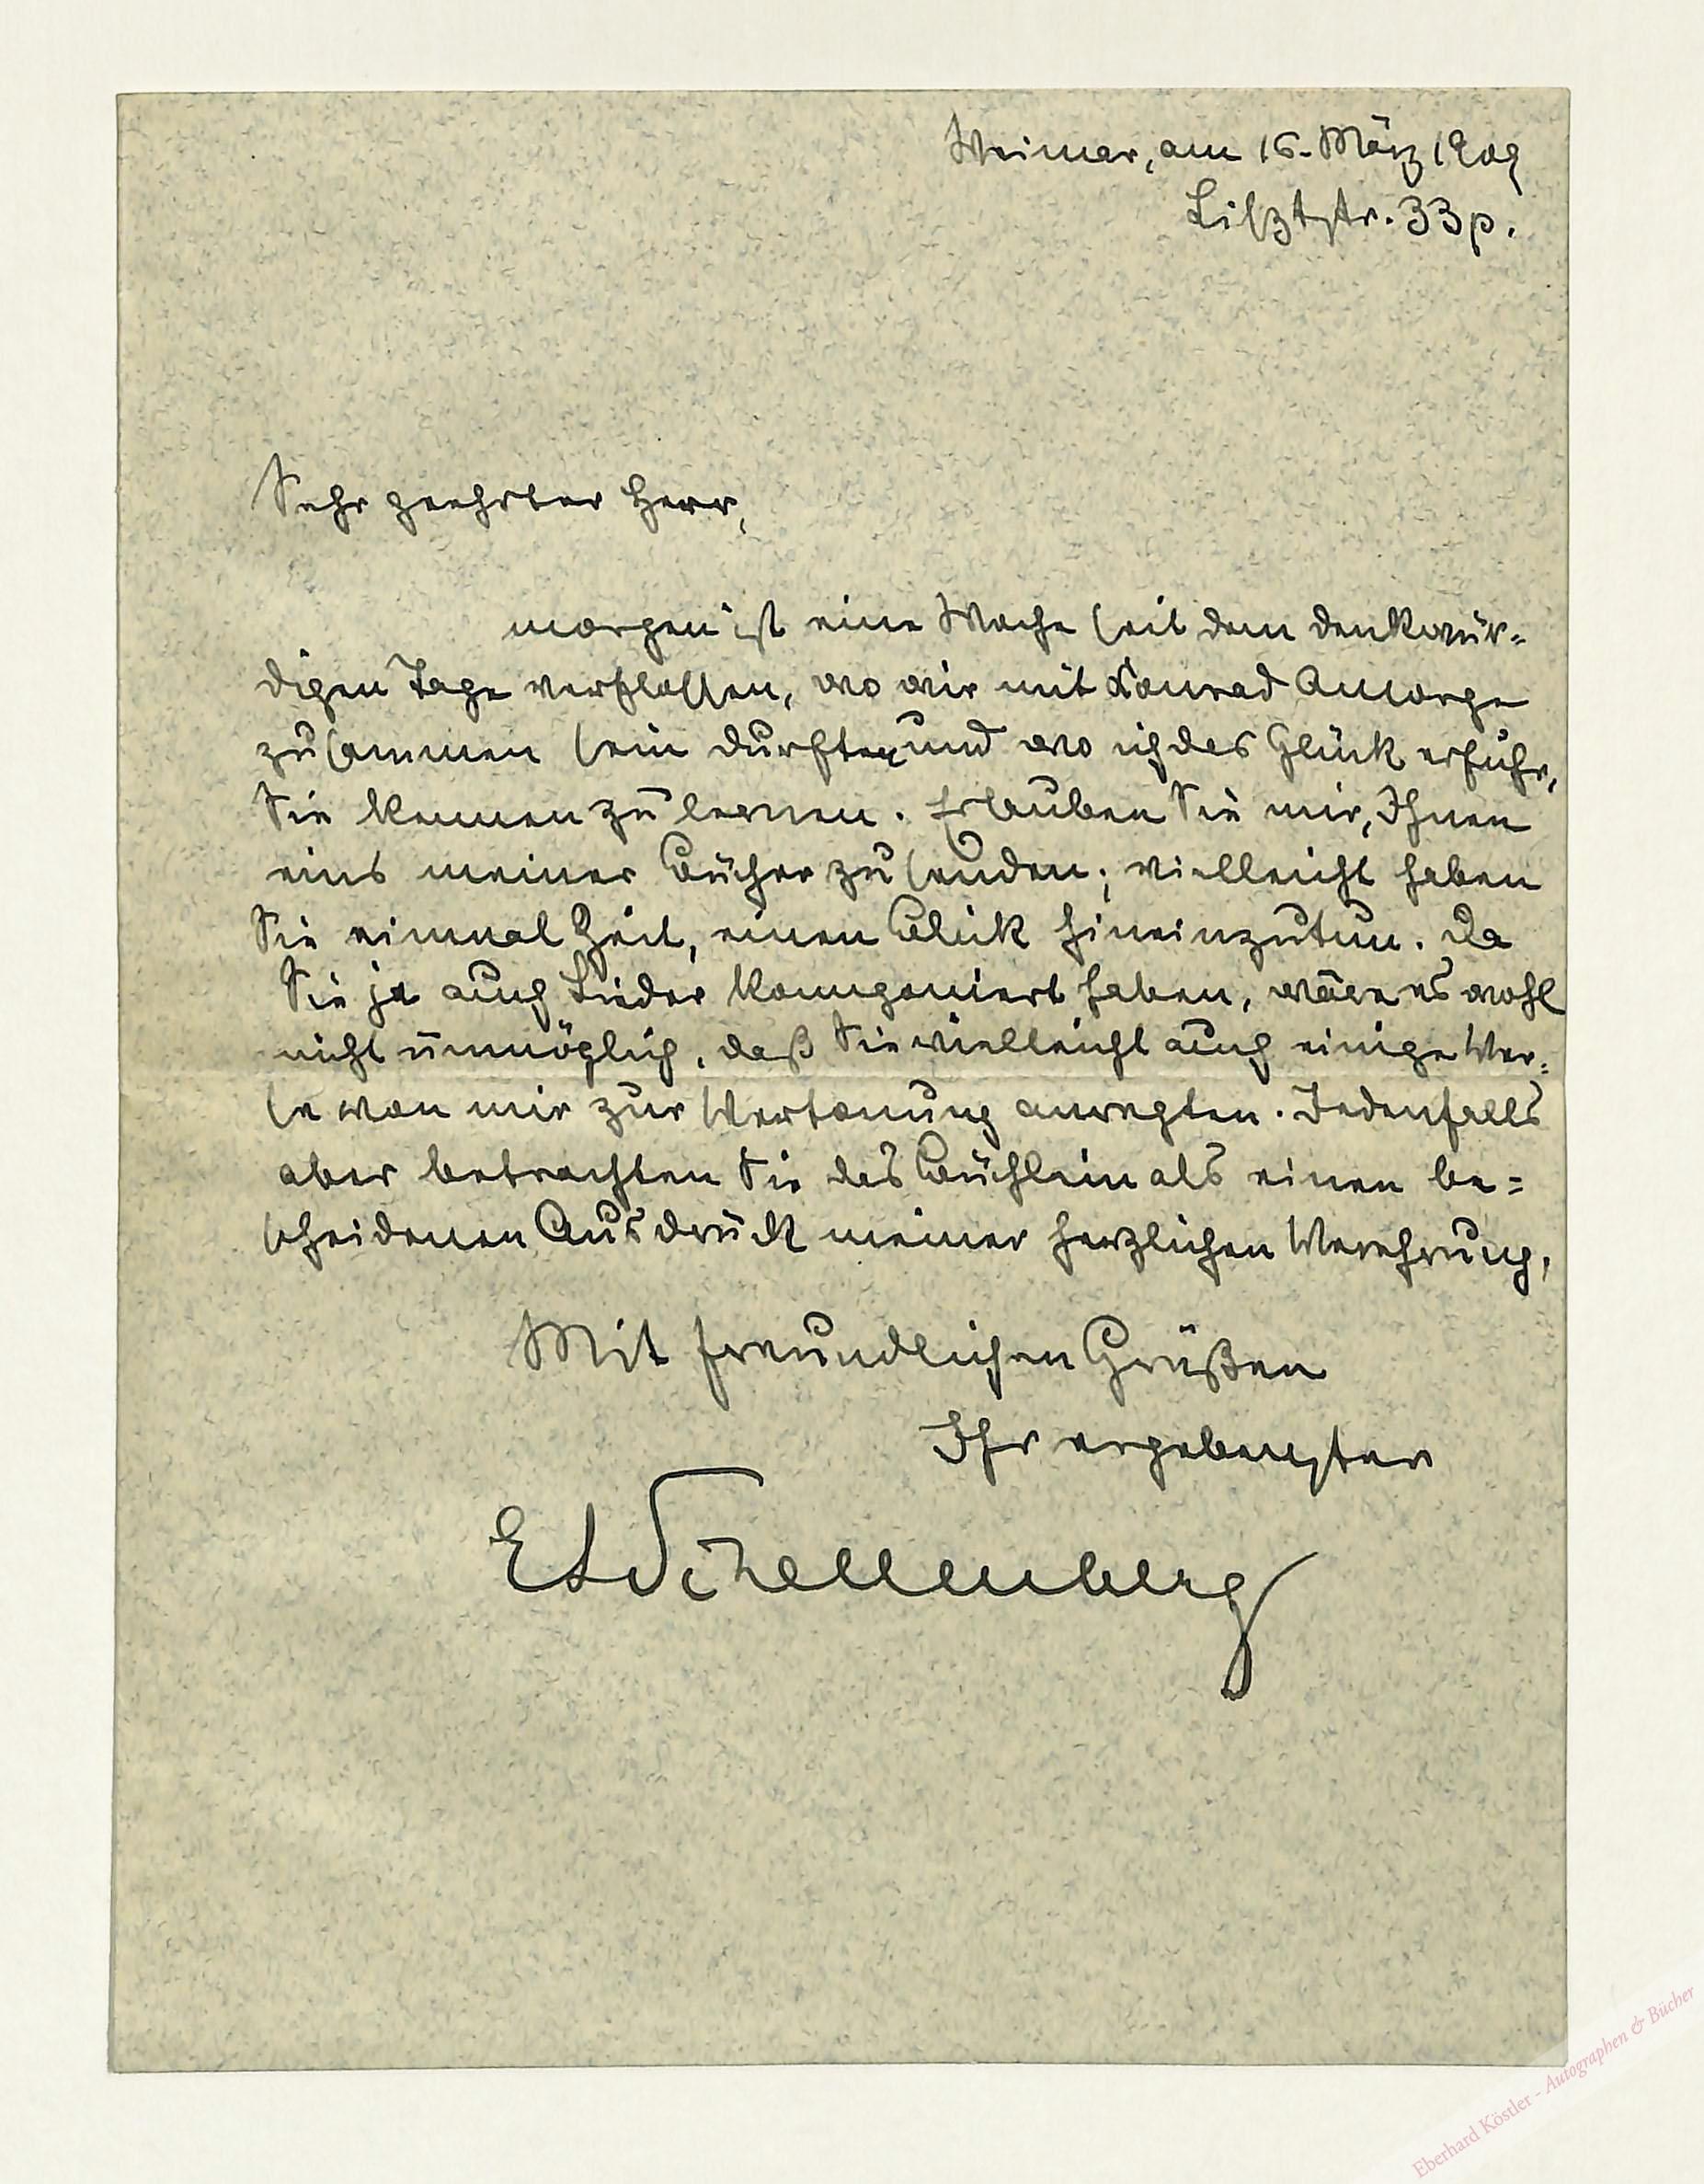 Weimar, am 16. März 1909
Lißztstr. 33 p.
Sehr geehrter Herr,
morgen ist eine Woche seit dem denkwür-
digen Tage verflossen, wo wir mit Konrad Ansorge
zusammen sein durften und wo ich das Glück erfuhr,
Sie kennen zu lernen. Erlauben Sie mir, Ihnen
eins meiner Bücher zu senden; vielleicht haben
Sie einmal Zeit, einen Blick hineinzutun. Da
Sie ja auch Lieder komponiert haben, wäre es wohl
nicht unmöglich, daß Sie vielleicht auch einige Ver-
se von mir zur Vertonung anregten. Jedenfalls
aber betrachten Sie das Büchlein als einen be-
scheidenen Ausdruck meiner herzlichen Verehrung.
Mit freundlichen Grüßen
Ihr ergebenster
ELSchellenberg
Eberhard Köstler - Autographen & Bücher